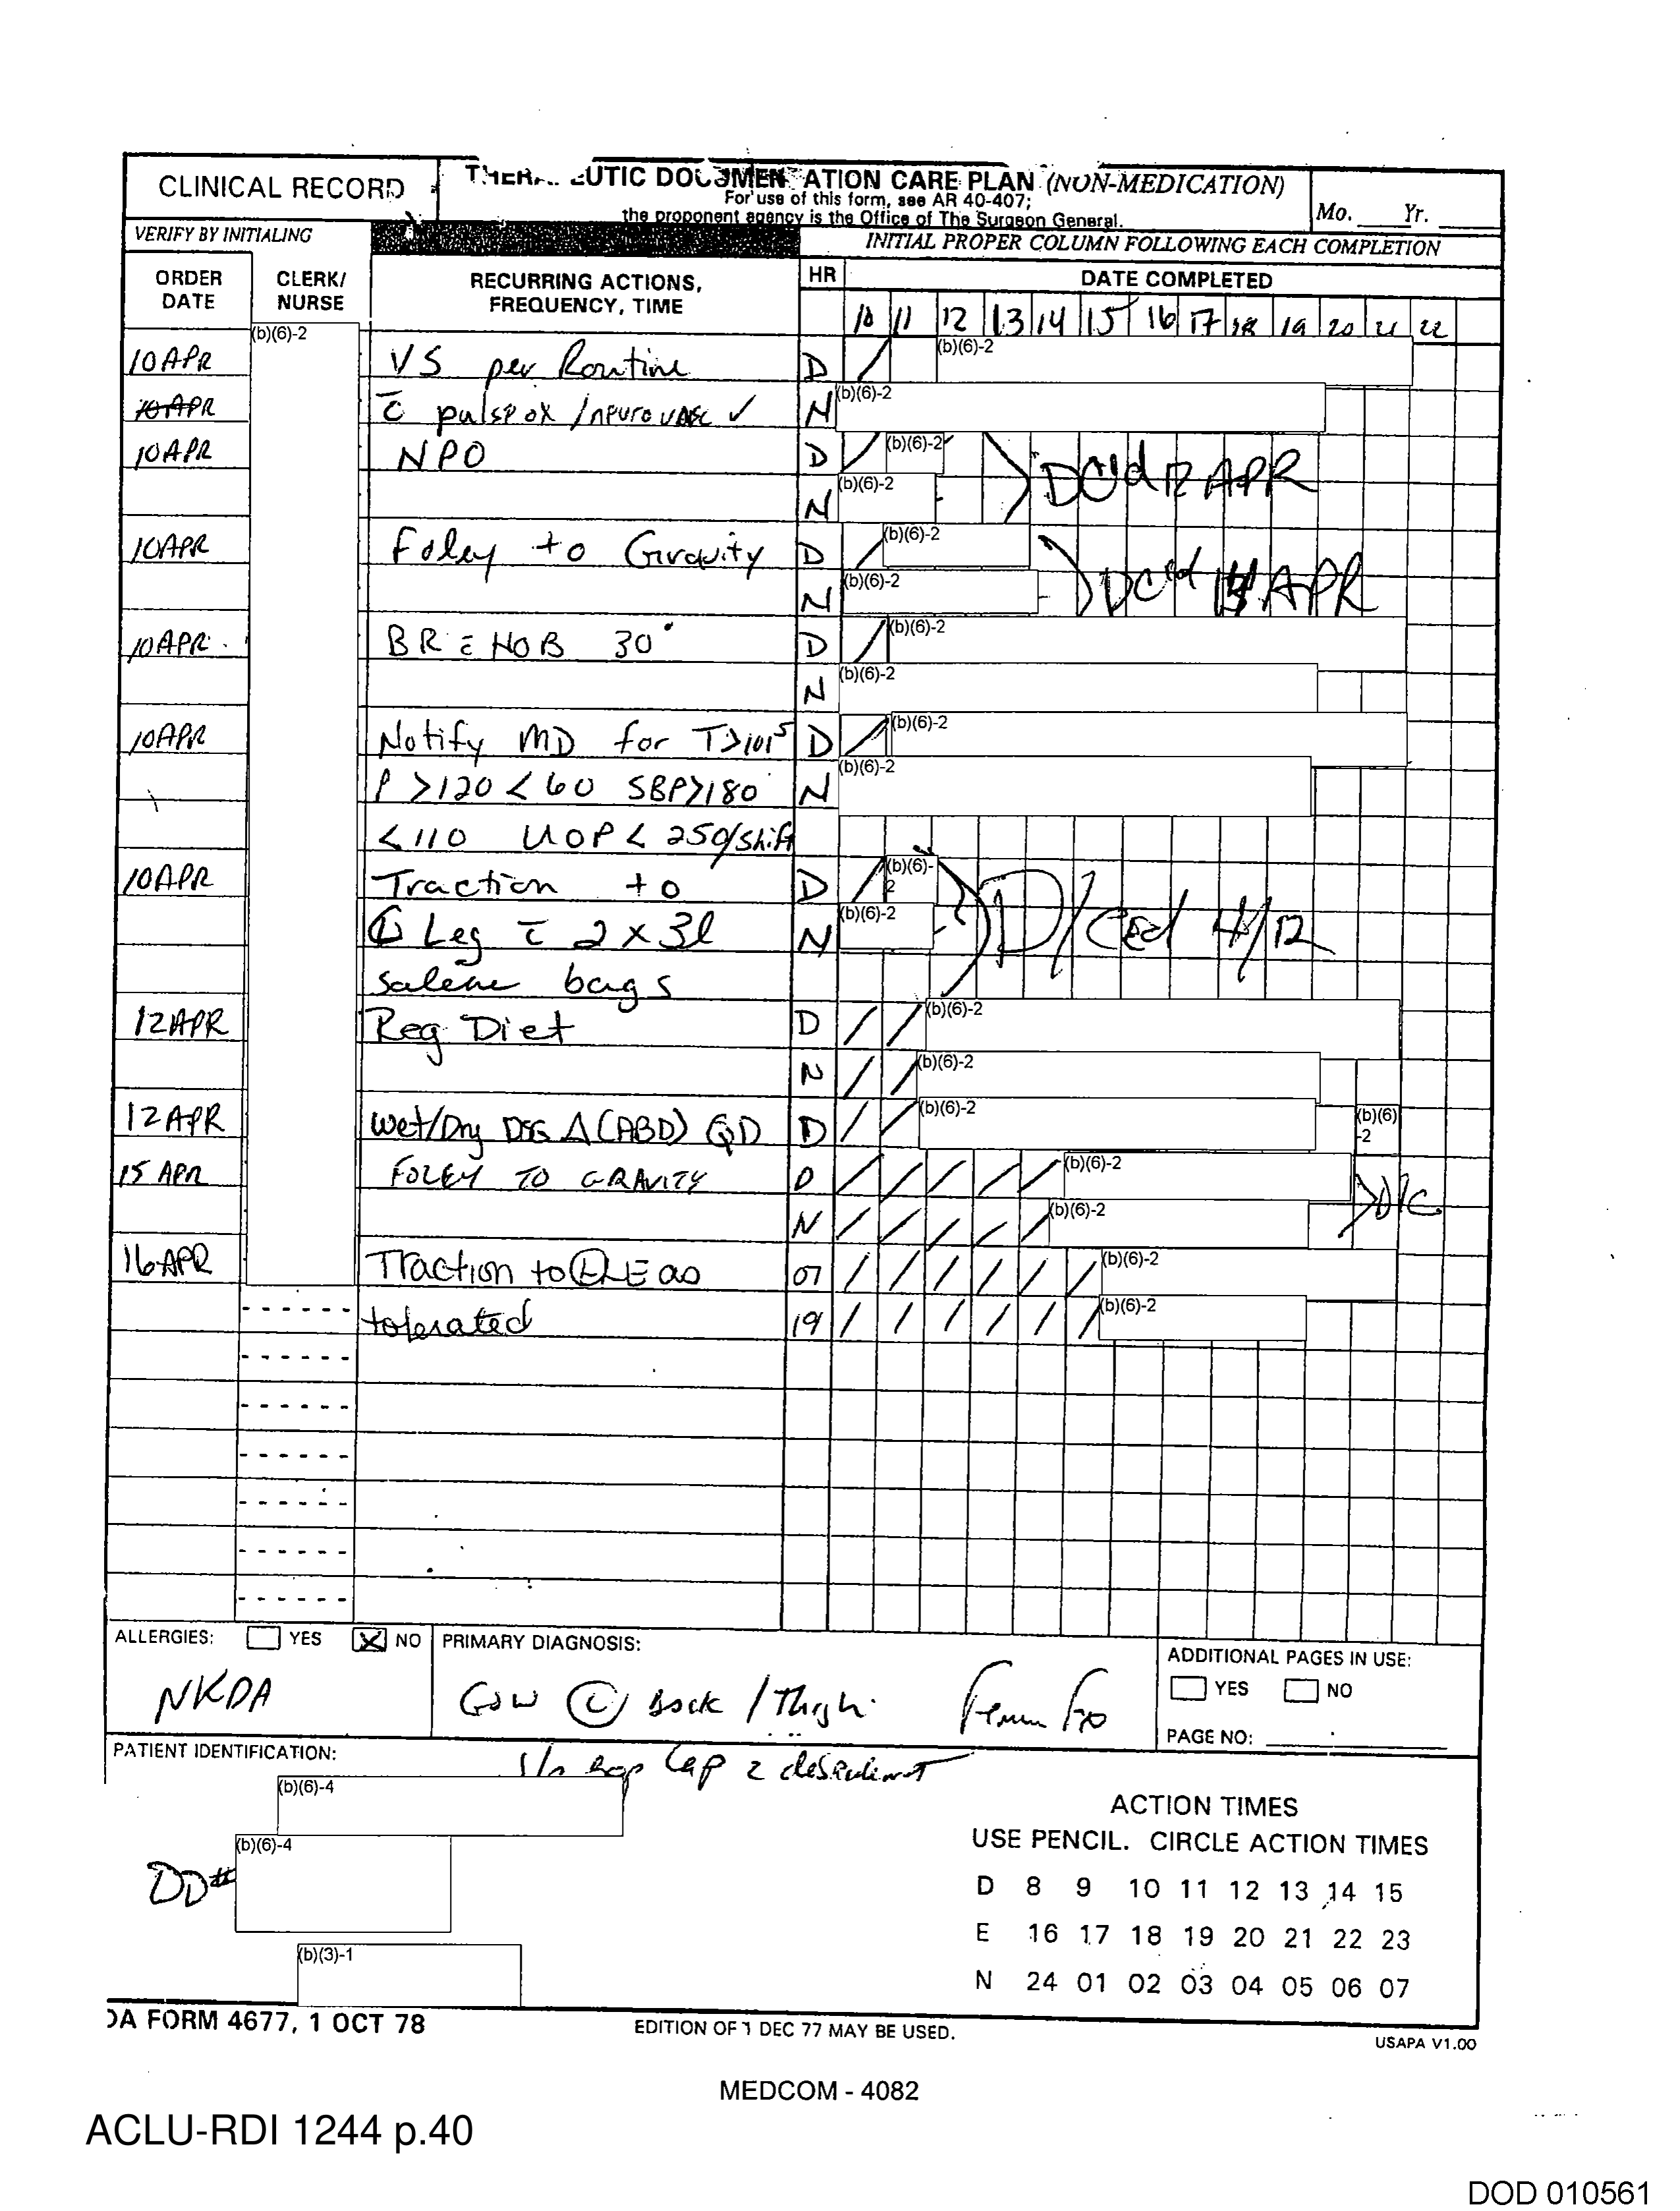 CLINICAL RECORD
DOCUMENTATION CARE PLAN (NON-MEDICATION)
For use of this form, see AR 40-407;
the proponent agency is the Office of The Surgeon General.
Mo. Yr.
VERIFY BY INITIALING
INITIAL PROPER COLUMN FOLLOWING EACH COMPLETION
ORDER DATE
CLERK/ NURSE
RECURRING ACTIONS, FREQUENCY, TIME
HR
DATE COMPLETED
10 11 12 13 14 15 16 17 18 19 20 21 22
(b)(6)-2
10APR VS per Routine D (b)(6)-2
10APR c̄ pulse ox /neurovasc ✓ N (b)(6)-2
10APR NPO D (b)(6)-2
DC'd 12 APR
N (b)(6)-2
10APR Foley to Gravity D (b)(6)-2
DC'd APR
N (b)(6)-2
10APR BR c̄ HOB 30° D (b)(6)-2
N (b)(6)-2
10APR Notify MD for T>101⁵ D (b)(6)-2
P >120 <60 SBP>180 N (b)(6)-2
<110 UOP < 250/shift
10APR Traction to D (b)(6)-2
D/ced 4/12
Ⓛ Leg c̄ 2 x 3l N (b)(6)-2
salene bags
12APR Reg Diet D (b)(6)-2
N (b)(6)-2
12APR Wet/Dry DSG Δ (ABD) QD D (b)(6)-2 (b)(6)-2
15 APR FOLEY TO GRAVITY D (b)(6)-2
D/C
N (b)(6)-2
16APR Traction to ⓁLE as 07 (b)(6)-2
tolerated 19 (b)(6)-2
ALLERGIES: YES NO
NKDA
PRIMARY DIAGNOSIS:
GSW Ⓛ Back / Thigh Femur Fx
ADDITIONAL PAGES IN USE:
YES NO
PAGE NO:
PATIENT IDENTIFICATION:
Lap
(b)(6)-4
DD# (b)(6)-4
(b)(3)-1
ACTION TIMES
USE PENCIL. CIRCLE ACTION TIMES
D 8 9 10 11 12 13 14 15
E 16 17 18 19 20 21 22 23
N 24 01 02 03 04 05 06 07
DA FORM 4677, 1 OCT 78
EDITION OF 1 DEC 77 MAY BE USED.
USAPA V1.00
MEDCOM - 4082
ACLU-RDI 1244 p.40
DOD 010561